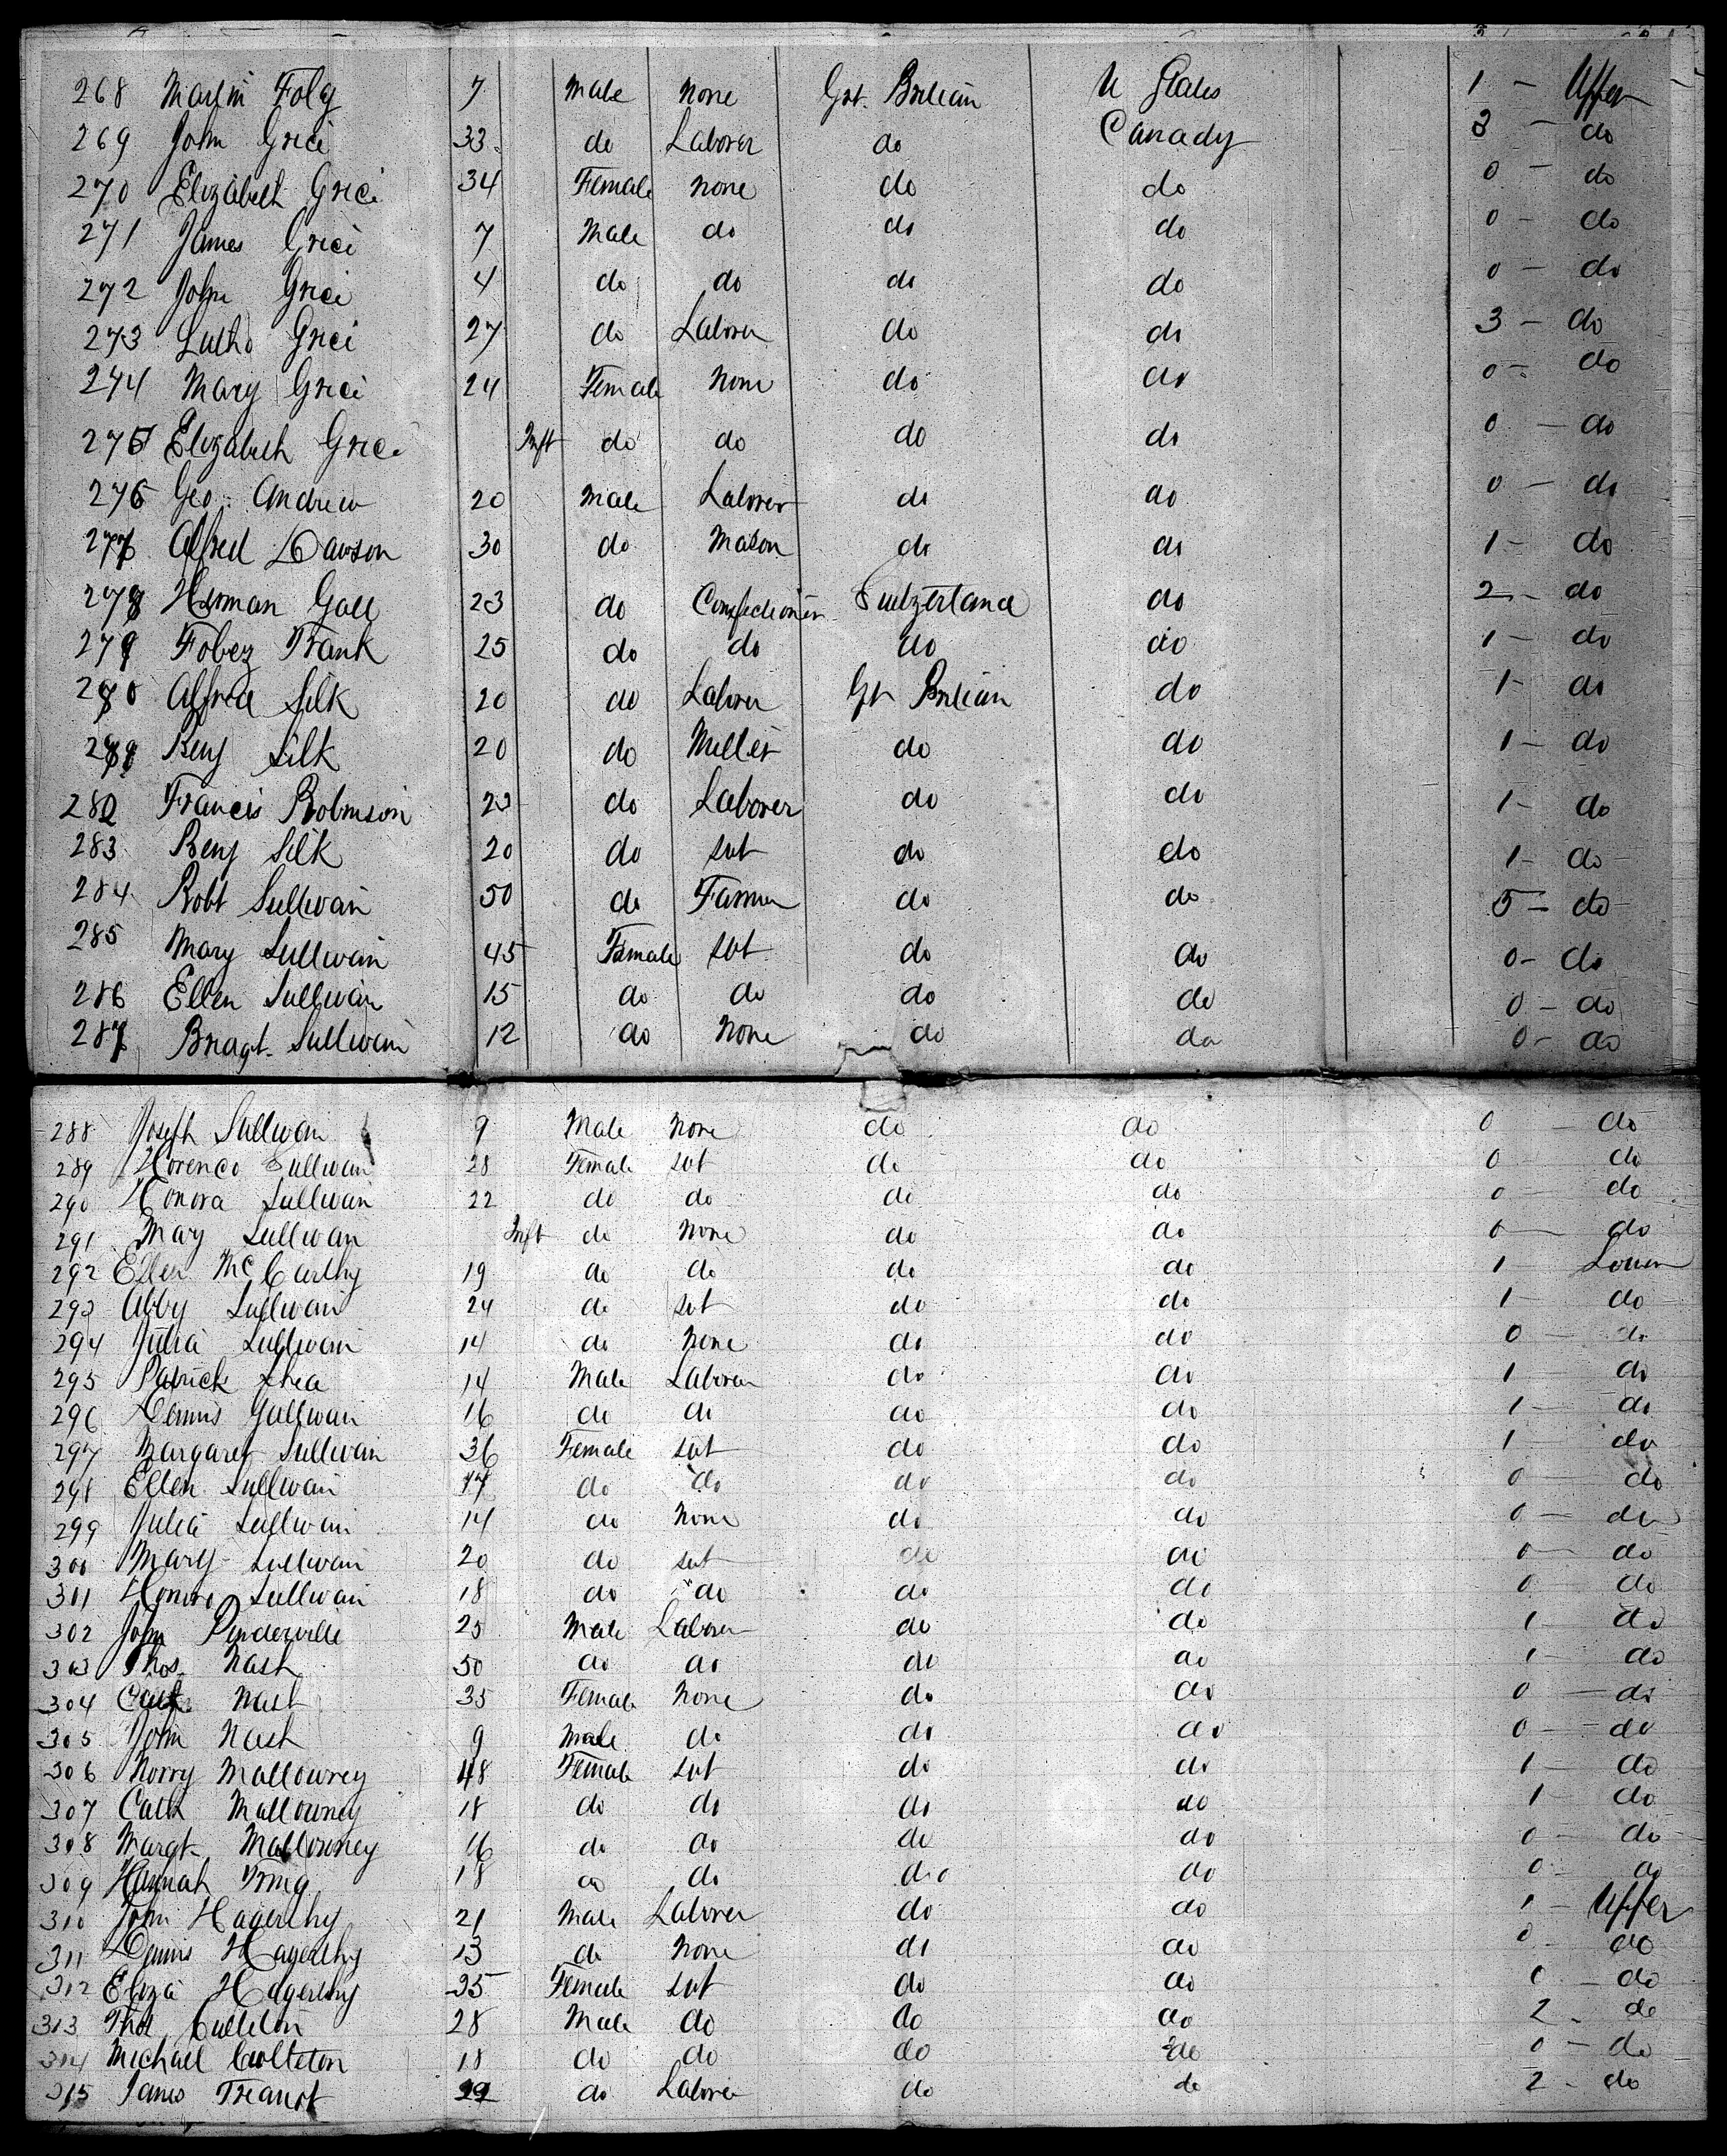 268 Martin Foly 7 Male None Grt. Britian U States 1 - Upper
269 John Grice 33 do Laborer do Canady 3 - do
270 Elizabeth Grice 34 Female none do do 0 - do
271 James Grice 7 Male do do do 0 - do
272 John Grice 4 do do do do 0 - do
273 Grice 27 do Laborer do do 3 - do
274 Mary Grice 24 Female None do do 0 - do
275 Elizabeth Grice Inft do do do do 0 - do
276 Geo. Andrew 20 Male Laborer do do 0 - do
277 Alfred Dawson 30 do Mason do do 1 - do
278 Herman Gall 23 do Confectioner Switzerland do 2 - do
279 Fobez Frank 25 do do do do 1 - do
280 Alfred Silk 20 do Laborer Gt Britian do 1 - do
281 Benj Silk 20 do Miller do do 1 - do
282 Francis Robinson 23 do Laborer do do 1 - do
283 Benj Silk 20 do Svt do do 1 - do
284 Robt Sullivan 50 do Farmer do do 5 - do
285 Mary Sullivan 45 Female Svt do do 0 - do
286 Ellen Sullivan 15 do do do do 0 - do
287 Bridgt. Sullivan 12 do None do do 0 - do
288 Joseph Sullivan 9 Male None do do 0 - do
289 Florence Sullivan 28 Female Svt do do 0 - do
290 Honora Sullivan 22 do do do do 0 - do
291 Mary Sullivan Inft do None do do 0 - do
292 Ellen McCarthy 19 do do do do 1 Lower
293 Abby Sullivan 24 do Svt do do 1 - do
294 Julia Sullivan 14 do None do do 0 - do
295 Patrick Shea 14 Male Laborer do do 1 - do
296 Dennis Sullivan 16 do do do do 1 - do
297 Margaret Sullivan 36 Female Svt do do 1 - do
298 Ellen Sullivan 17 do do do do 0 - do
299 Julia Sullivan 14 do None do do 0 - do
300 Mary Sullivan 20 do Svt do do 0 - do
301 Honora Sullivan 18 do do do do 0 - do
302 John Penderville 25 Male Laborer do do 1 - do
303 Thos. Nash 50 do do do do 1 - do
304 Cath Nash 35 Female None do do 0 - do
305 John Nash 9 Male do do do 0 - do
306 Norry Mallowney 48 Female Svt do do 1 - do
307 Cath Mallowney 18 do do do do 1 - do
308 Margt. Mallowney 16 do do do do 0 - do
309 Hannah 18 do do do do 0 - do
310 John Hagerthy 21 Male Laborer do do 1 - Upper
311 Dennis Hagerthy 13 do None do do 0 - do
312 Eliza Hagerthy 35 Female Svt do do 1 - do
313 Thos Culleton 28 Male do do do 2 - do
314 Michael Culleton 18 do do do do 0 - do
315 James Treanor do Laborer do do 2 - do